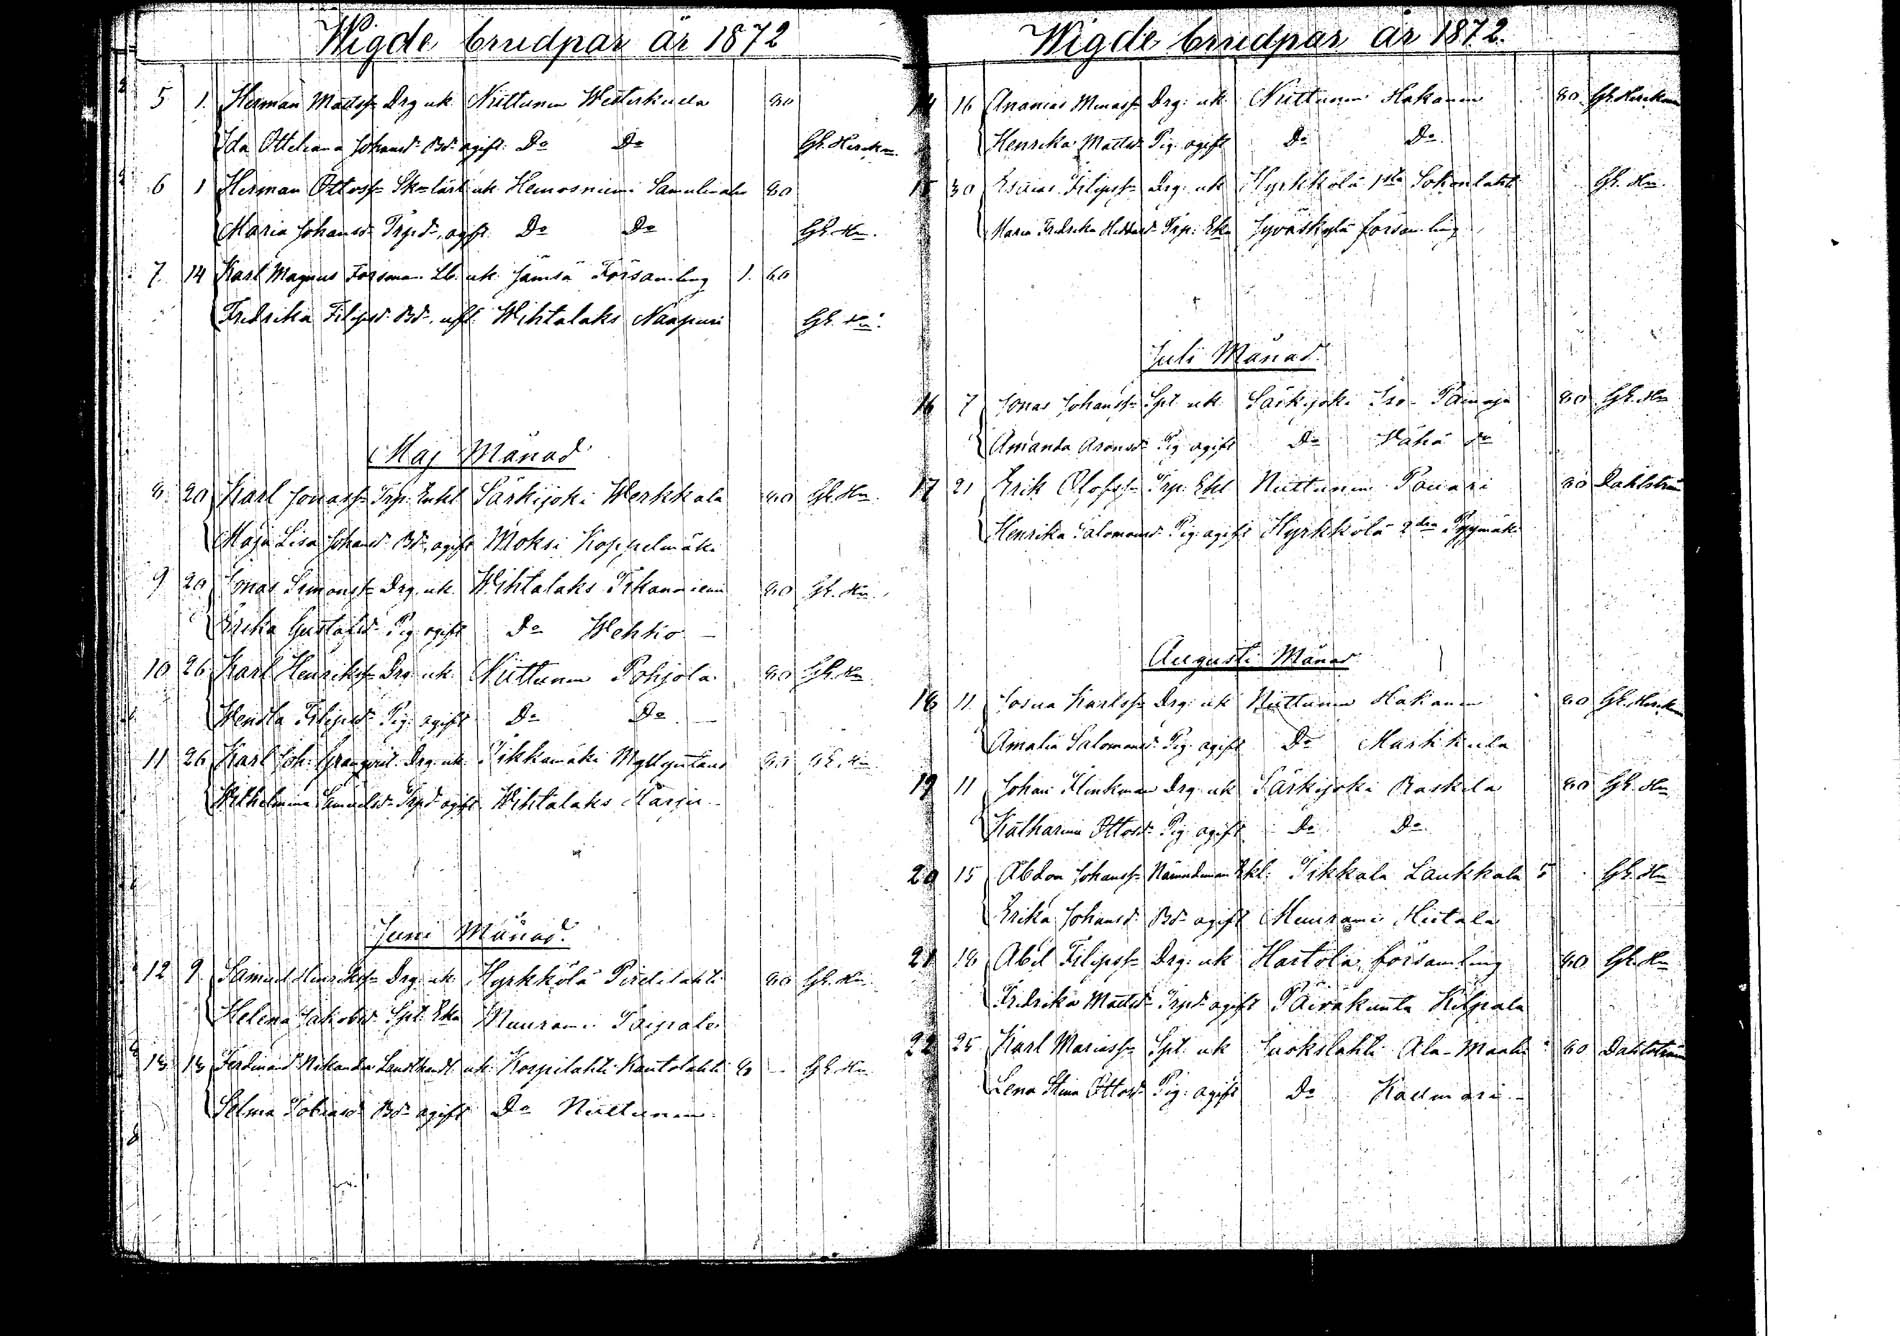 Wigde brudpar år 1872
5 1. Herman Mattss. Drg. uk. Nuttunen Westerkula 80
Ida Otteliana Johansd. Bd. ogift. Do Do Gh. Heickm.
6 1 Herman Ottoss. uk. Hemosniemi 80
Maria Johansd. Trpd. ogft. Do Do Gh. Hm.
7. 14 Karl Magnus Forsman Lb. uk. Jämsä Församling 1. 60
Fredrika Filipsd. Bd. Wihtalaks Naapuri Gh. Hm.
Maj Månad
8. 20 Karl Jonass. Trp. Enkl Särkijoki Werkkala 80 Gh. Hm.
Maja Lisa Johansd. Bd. ogift Moksi Koppelmäki
9 20 Jonas Simonss. Drg. uk. Wihtalaks 80 Gh. Hm.
Erika Gustafsd. Pig. ogift Do Wehkö
10 26 Karl Henrikss. Drg. uk. Nuttunen Pohjola 80 Gh. Hm
Wendla Filipsd. Pig. ogift Do Do
11 26 Karl Joh. Granqvist Drg. uk. Tikkamäki 80 Gh. Hm
Wilhelmina Samuelsd. Trpd. ogift Wihtalaks Harju
Juni Månad.
12 9 Samuel Henrikss. Drg. uk. Hyrkkölä 80 Gh. Hm.
Helena Jakobsd. Spt. Eka Muurame Saipale
13 13 Ferdinand Nikander Landthandl. uk. Korpilahti Kautolahti 8 Gh. Hm
Selma Tobiasd. Bd. ogift Do Nuttunen
Wigde brudpar år 1872.
14 16 Ananias Drg. uk. Nuttunen Hakanen 80 Gh. Heickm
Henrika Mattsd. Pig. ogift Do Do
15 30 Esaias Filipss. Drg. uk Hyrkkölä 1sta Sokonlahti Gh. Hm
Maria Fredrika Trp. Eka Jyväskylä församling
Juli Månad.
16 7 Jonas Johanss. Spt. uk. Särkijoki Iso-Pämoja 80 Gh. Hm
Amanda Aronsd. Pig. ogift Do Vähä do
17 21 Erik Olofss. Trp. Ekl Nuttunen Pouari 80 Dahlström
Henrika Salomonsd. Pig. ogift Hyrkkölä 2dra Pyymäki
Augusti Månad
18 11 Josua Karlss. Drg. uk Nuttunen Hakanen 80 Gh. Heickm
Amalia Salomonsd. Pig. ogift Do Markkula
19 11 Johan Klinkman Drg. uk Särkijoki Raskila 80 Gh. Hm
Katharina Ottosd. Pig. ogift Do Do
20 15 Abdon Johanss. Nämndeman Ekl. Tikkala Laukkala 5 Gh. Hm
Erika Johansd. Bd. ogift Muurame Hiitala
21 18 Abel Filipss. Drg. uk Hartola församling 80 Gh. Hm
Fredrika Mattsd. Trpd. ogift Päiväkunta Kilpala
22 25 Karl Mariass. Spt. uk Juokslahti Ala-Maahi 80 Dahlström
Lena Stina Ottosd. Pig. ogift Do Kaemari